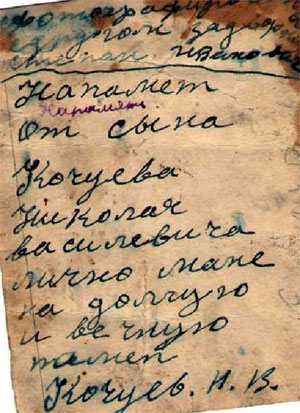 фотографиро
задвор
степан Иванович
Напамет
Напамять
от сына
Кочуева
Николая
василевича
лично мане
на долгую
и вечную
памет
Кочуев. Н. В.